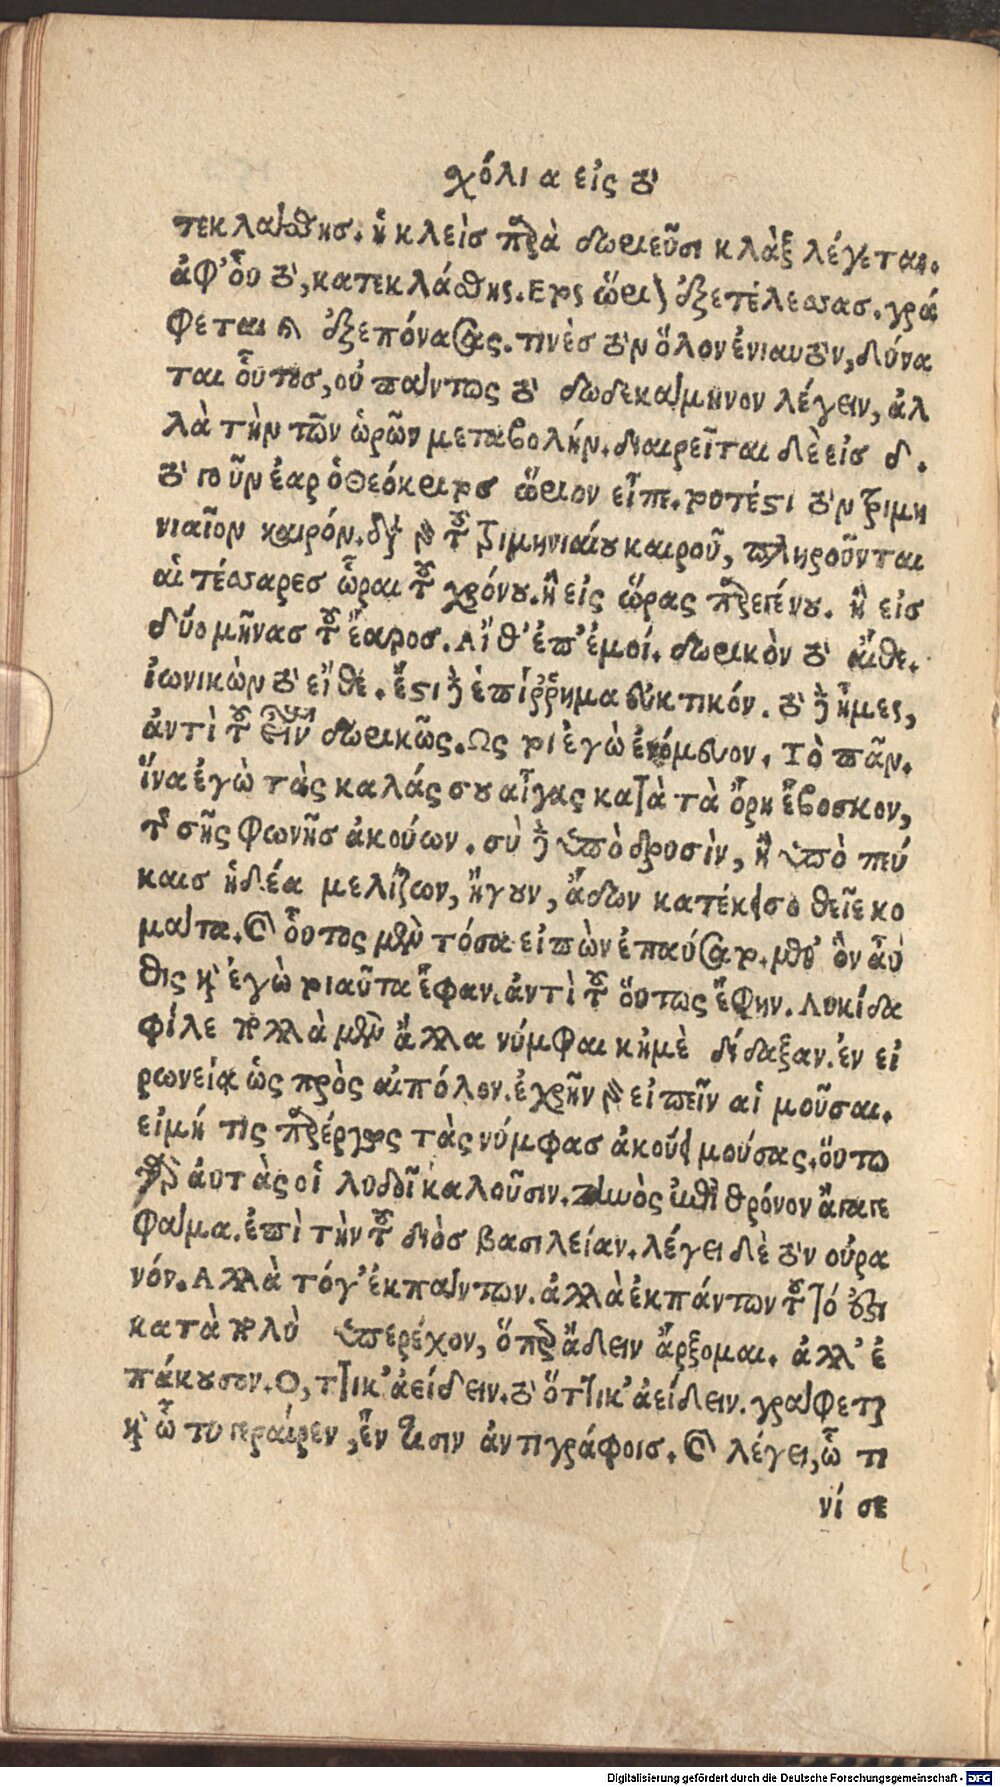 χόλια εἰς τὸ
τεκλάσθησ. ἡ κλεὶσ παρὰ δωριεῦσι κλὰξ λέγεται.
ἀφ' οὗ τὸ, κατεκλάσθης. Ετος ὥριον ἐξετέλεσσας. γρά
φεται καὶ ἐξεπόνασας. τινὲσ τὸν ὅλον ἐνιαυτὸν, δύνα
ται οὗτοσ, οὐ πάντως τὸ δωδεκάμηνον λέγειν, ἀλ
λὰ τὴν τῶν ὡρῶν μεταβολήν. διαιρεῖται δὲ εἰσ δ.
τὸ γοῦν ἔαρ ὁ Θεόκριτοσ ὥριον εἶπε. τουτέστι τὸν τριμη
νιαῖον καιρόν. διὰ γὰρ τοῦ τριμηνιαίου καιροῦ, πληροῦνται
αἱ τέσσαρεσ ὧραι τοῦ χρόνου. ἢ εἰς ὥρας παρεγένου. ἢ εἰσ
δύο μῆνασ τοῦ ἔαροσ. Αἴθ' ἐπ' ἐμοί. δωρικὸν τὸ αἴθε.
ἰωνικὼν τὸ εἴθε. ἔστι δὲ ἐπίῤῥημα εὐκτικόν. τὸ δὲ ἦμες,
ἀντὶ τοῦ εἶναι δωρικῶς. Ως τοι ἐγὼ ἐνόμευον. Τὸ πᾶν.
ἵνα ἐγὼ τὰς καλάς σου αἶγας κατὰ τὰ ὄρη ἔβοσκον,
τῆ σῆς φωνῆσ ἀκούων. σὺ δὲ ὑπὸ δρυσὶν, ἢ ὑπὸ πεύ
καισ ἡδέα μελίζων, ἤγουν, ἄδων κατέκεισο θεῖε κο
μάτα. Καὶ οὗτος μὲν τόσα εἰπὼν ἐπαύσατο. μεθ' ὃν αὖ
θις καὶ ἐγὼ τοιαῦτα ἔφαν. ἀντὶ τοῦ οὕτως ἔφην. Λυκίδα
φίλε πολλὰ μὲν ἄλλα νύμφαι κἠμὲ δίδαξαν. ἐν εἰ
ρωνείᾳ ὡς πρὸς αἰπόλον. ἐχρῆν γὰρ εἰπεῖν αἱ μοῦσαι.
εἰμή τις παρέργως τὰς νύμφασ ἀκούει μούσας. οὕτω
γὰρ ἀυτὰς οἱ λυδοῖ καλοῦσιν. Ζηνὸς ἐπὶ θρόνον ἄγαγε
φάμα. ἐπὶ τὴν τοῦ διὸσ βασιλείαν. λέγει δὲ τὸν οὐρα
νόν. Αλλὰ τόγ' ἐκπάντων. ἀλλὰ ἐκπάντων τοῦτό ἐστι
κατὰ πολὺ ὑπερέχον, ὅπερ ἄδειν ἄρξομαι. ἀλλ' ἐ
πάκουσον. Ο, ττικ' ἀείδειν. τὸ ὅττικ' ἀείδειν. γράφεται
καὶ ὧ τυ γεραίρεν, ἔν τισιν ἀντιγράφοισ. Καὶ λέγει, ὧ τι
νί σε
Digitalisierung gefördert durch die Deutsche Forschungsgemeinschaft - DFG